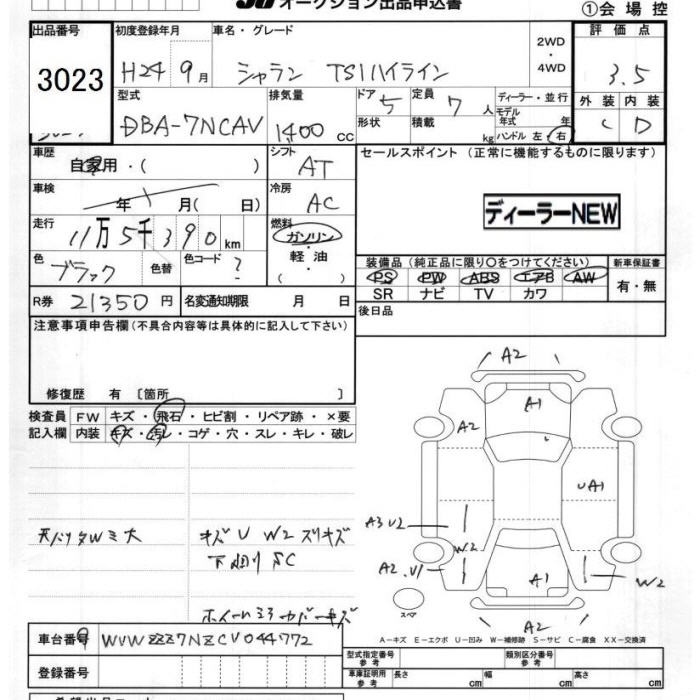 オークション出品申込書
①会場控
出品番号 初度登録年月 車名・グレード 評価点
3023 H24 9月 シャラン TSIハイライン 2WD・4WD 3.5
型式 排気量 ドア 定員 ディーラー・並行 外装 内装
DBA-7NCAV 1400cc 5 7人 モデル年式 年 C D
形状 積載 kg ハンドル 左・右
車歴 自家用・( ) シフト AT セールスポイント (正常に機能するものに限ります)
車検 年 月( 日) 冷房 AC
ディーラーNEW
走行 11万5千390km 燃料 ガソリン・軽油
色 ブラック 色替 色コード ?
装備品(純正品に限り○をつけてください) 新車保証書
PS PW ABS エアB AW 有・無
SR ナビ TV カワ
R券 21350円 名変通知期限 月 日
後日品
注意事項申告欄(不具合内容等は具体的に記入して下さい)
修復歴 有 〔箇所 〕
検査員 FW キズ・飛石・ヒビ割・リペア跡・×要
記入欄 内装 キズ・汚レ・コゲ・穴・スレ・キレ・破レ
A2
A1
A2
UA1
A3 U2
W2
A2.U1
A1
W2
A2
スペア
天バリタルミ大 キズU W2 スリキズ
下廻りSC
ホイールミラーカバーキズ
A-キズ E-エクボ U-凹み W-補修跡 S-サビ C-腐食 XX-交換済
車台番号 WVWZZZ7NZCV044772
型式指定番号 参考 類別区分番号 参考
登録番号
車庫証明用 参考 長さ cm 幅 cm 高さ cm